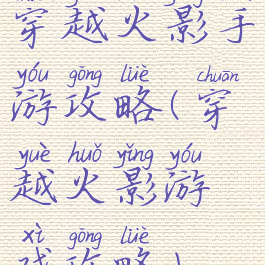 穿越火影手
yóu gōng lüè chuān
游攻略(穿
yuè huǒ yǐng yóu
越火影游
xì gōng lüè
戏攻略)